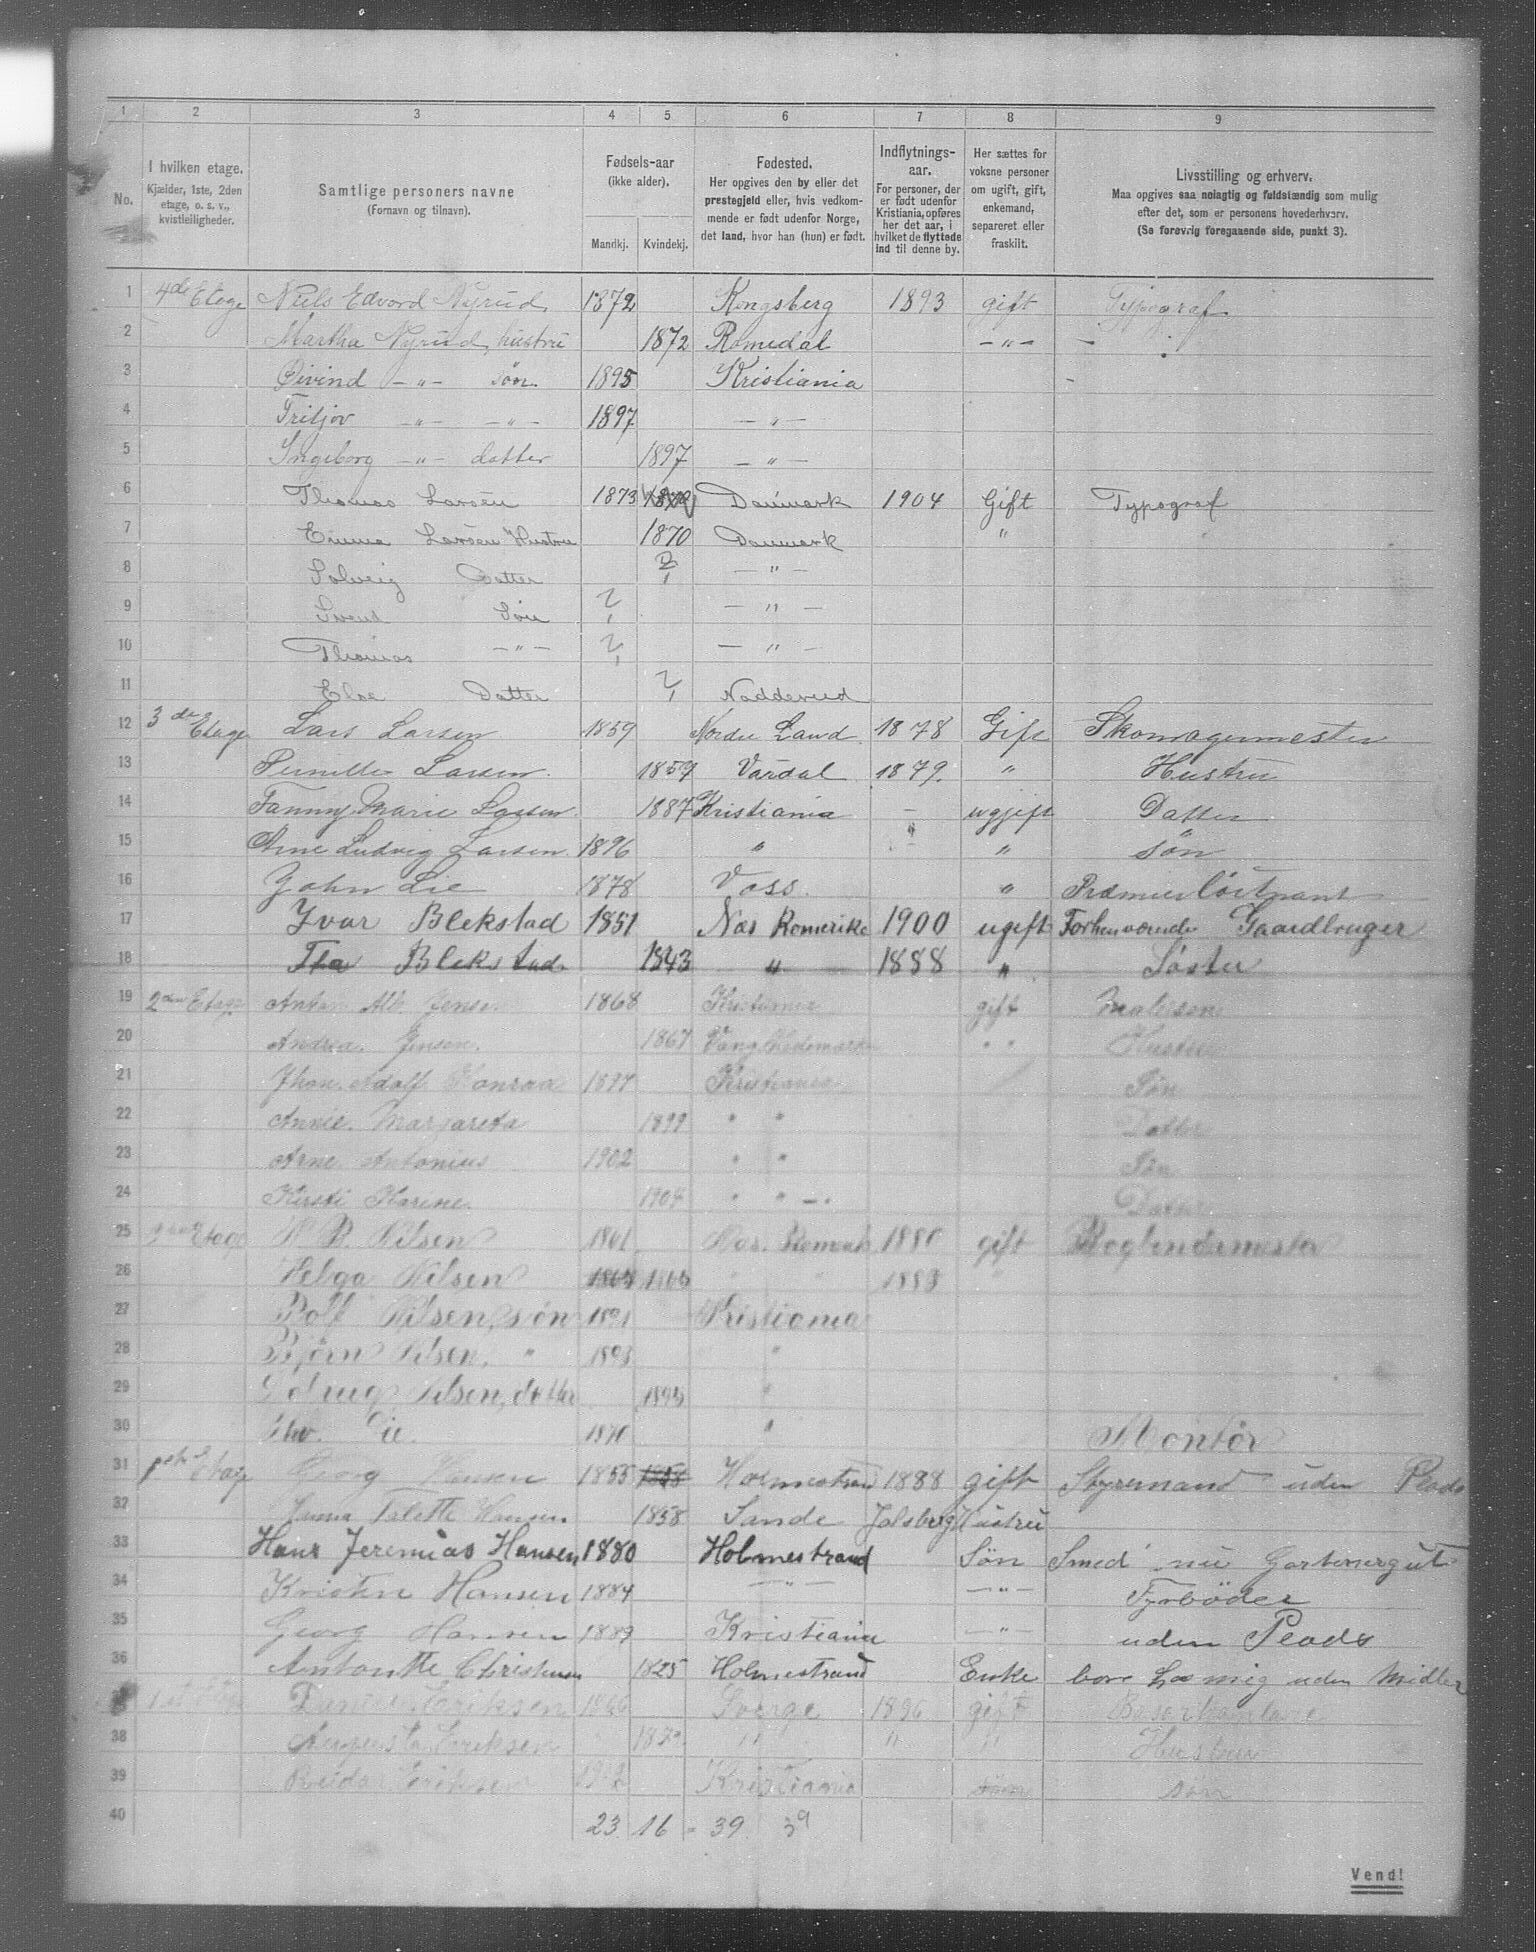 1 2 3 4 5 6 7 8 9
No.
I hvilken etage.
Kjælder, 1ste, 2den
etage, o. s. v.,
kvistleiligheder.
Samtlige personers navne
(Fornavn og tilnavn).
Fødsels-aar
(ikke alder).
Mandkj. Kvindekj.
Fødested.
Her opgives den by eller det
prestegjeld eller, hvis vedkom-
mende er født udenfor Norge,
det land, hvor han (hun) er født.
Indflytnings-
aar.
For personer, der
er født udenfor
Kristiania, opføres
her det aar, i
hvilket de flyttede
ind til denne by.
Her sættes for
voksne personer
om ugift, gift,
enkemand,
separeret eller
fraskilt.
Livsstilling og erhverv.
Maa opgives saa nøiagtig og fuldstændig som mulig
efter det, som er personens hovederhverv.
(Se forøvrig foregaaende side, punkt 3).
1 4de Etage Niels Edvard Nyrud 1872 Kongsberg 1893 gift Typograf
2 Martha Nyrud, hustru 1872 Romedal — " —
3 Øivind — " — søn 1895 Kristiania
4 Fritjov — " — — " — 1897 — " —
5 Ingeborg — " — datter 1897 — " —
6 Thomas Larsen 1873 Danmark 1904 Gift Typograf
7 Emma Larsen Hustru 1870 Danmark "
8 Solveig Datter ? — " —
9 Svend Søn ? — " —
10 Thomas — " — ? — " —
11 Else Datter ? Nadderud
12 3die Etage Lars Larsen 1859 Nordre Land 1878 Gift Skomagermester
13 Pernille Larsen 1857 Vardal 1879 " Hustru
14 Fanny Marie Larsen 1887 Kristiania — ugift Datter
15 Arne Ludvig Larsen 1896 " " " søn
16 John Lie 1878 Voss " Premierløitnant
17 Yvar Blekstad 1851 Næs Romerike 1900 ugift Forhenværende Gaardbruger
18 Blekstad 1843 " 1888 " Søster
19 2den Etage Anton Alb. Jensen 1868 Kristiania gift
20 Andrea Jensen 1867 Vang Hedemarken " " Hustru
21 Jhon. Adolf Konrad 1897 Kristiania Søn
22 Annie Margareta 1899 " " Datter
23 Arne Antonius 1902 " " Søn
24 Kirsti Karine 1904 " " Datter
25 Etage Nilsen 1861 Næs. Romerik 1880 gift
26 Helga Nilsen 1866 " " 1883 "
27 Rolf Nilsen, søn 1891 Kristiania
28 Bjørn Nilsen, " 1893 "
29 Nilsen, datter 1895 "
30 Lie 1870 " Montör
31 1ste Etage Georg Hansen 1855 1858 Holmestrand 1888 gift Styremand uden Plads
32 Hansen 1858 Sande Jalsberg Hustru
33 Hans Jeremias Hansen 1880 Holmestrand Søn Smed nu Gartnergut
34 Kristen Hansen 1884 — " — — " — Fyrbøder
35 Georg Hansen 1889 Kristiania — " — uden Plads
36 Antonette Christensen 1825 Holmestrand Enke hos mig uden Midler
1st Etage Eriksen 1866 Sverge 1896 gift
38 Augusta Eriksen " " " Hustru
39 Reidar Eriksen Kristiania søn søn
40 23 16 = 39 39
Vend!